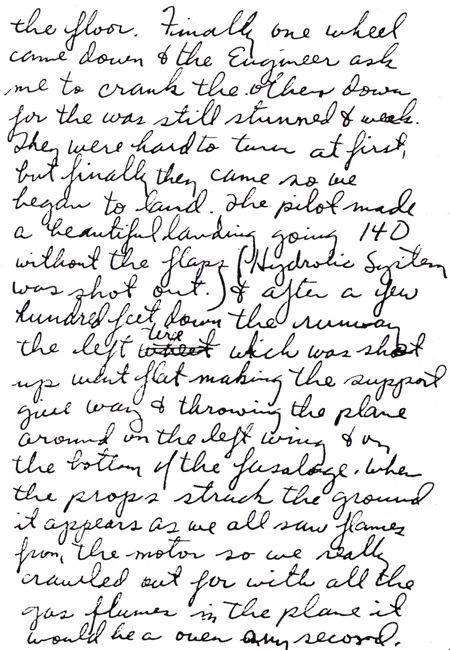 the floor. Finally one wheel
came down & the Engineer ask
me to crank the other down
for the was still stunned & weak.
They were hard to turn at first,
but finally they came so we
began to land. The pilot made
a beautiful landing going 140
without the flaps (Hydrolic System
was shot out.) & after a few
hundred feet down the runway
the left tire which was shot
up went flat making the support
give way & throwing the plane
around on the left wing & on
the bottom of the fusaloge. When
the props struck the ground
it appears as we all saw flames
from the motor so we really
crawled out for with all the
gas flumes in the plane it
would be a oven any second.